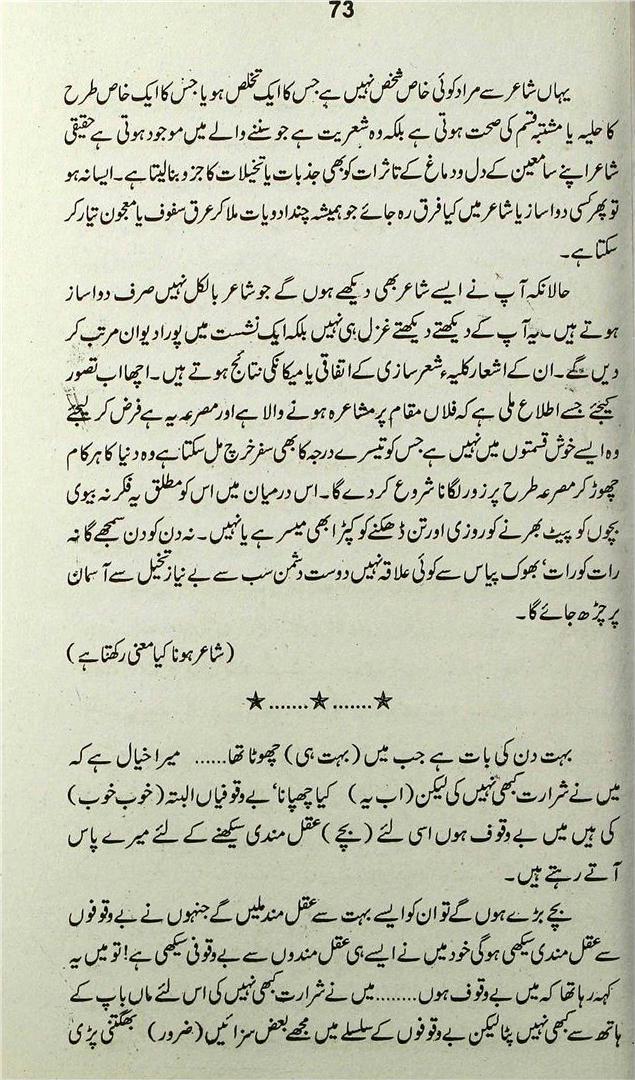 73
یہاں شاعر سے مراد کوئی خاص شخص نہیں ہے جس کا ایک تخلص ہو یا جس کا ایک خاص طرح
کا حلیہ یا مشتبہ قسم کی صحت ہوتی ہے بلکہ وہ شعریت ہے جو سننے والے میں موجود ہوتی ہے حقیقی
شاعر اپنے سامعین کے دل و دماغ کے تاثرات کو بھی جذبات یا تخیلات کا جزو بنا لیتا ہے۔ ایسا نہ ہو
تو پھر کسی دوا ساز یا شاعر میں کیا فرق رہ جائے جو ہمیشہ چند ادویات ملا کر عرق سفوف یا معجون تیار کر
سکتا ہے۔
حالانکہ آپ نے ایسے شاعر بھی دیکھے ہوں گے جو شاعر بالکل نہیں صرف دوا ساز
ہوتے ہیں۔ یہ آپ کے دیکھتے دیکھتے غزل ہی نہیں بلکہ ایک نشست میں پورا دیوان مرتب کر
دیں گے۔ ان کے اشعار کلیہء شعر سازی کے اتفاقی یا میکانکی نتائج ہوتے ہیں۔ اچھا اب تصور
کیجئے جسے اطلاع ملی ہے کہ فلاں مقام پر مشاعرہ ہونے والا ہے اور مصرعہ یہ ہے فرض کر لیجئے
وہ ایسے خوش قسمتوں میں نہیں ہے جس کو تیسرے درجہ کا بھی سفر خرچ مل سکتا ہے وہ دنیا کا ہر کام
چھوڑ کر مصرعہ طرح پر زور لگانا شروع کر دے گا۔ اس درمیان میں اس کو مطلق یہ فکر نہ بیوی
بچوں کو پیٹ بھرنے کو روزی اور تن ڈھکنے کو کپڑا بھی میسر ہے یا نہیں۔ نہ دن کو دن سمجھے گا نہ
رات کو رات‘ بھوک پیاس سے کوئی علاقہ نہیں دوست دشمن سب سے بے نیاز تخیل سے آسمان
پر چڑھ جائے گا۔
(شاعر ہونا کیا معنی رکھتا ہے)
★.......★.......★
بہت دن کی بات ہے جب میں (بہت ہی) چھوٹا تھا...... میرا خیال ہے کہ
میں نے شرارت کبھی نہیں کی لیکن (اب یہ) کیا چھپانا‘ بے وقوفیاں البتہ (خوب خوب)
کی ہیں میں بے وقوف ہوں اسی لئے (بچے) عقل مندی سیکھنے کے لئے میرے پاس
آتے رہتے ہیں۔
بچے بڑے ہوں گے تو ان کو ایسے بہت سے عقل مند ملیں گے جنہوں نے بے وقوفوں
سے عقل مندی سیکھی ہوگی خود میں نے ایسے ہی عقل مندوں سے بے وقوفی سیکھی ہے! تو میں یہ
کہہ رہا تھا کہ میں بے وقوف ہوں........ میں نے شرارت کبھی نہیں کی اس لئے ماں باپ کے
ہاتھ سے کبھی نہیں پٹا لیکن بے وقوفوں کے سلسلے میں مجھے بعض سزائیں (ضرور) بھگتنی پڑی